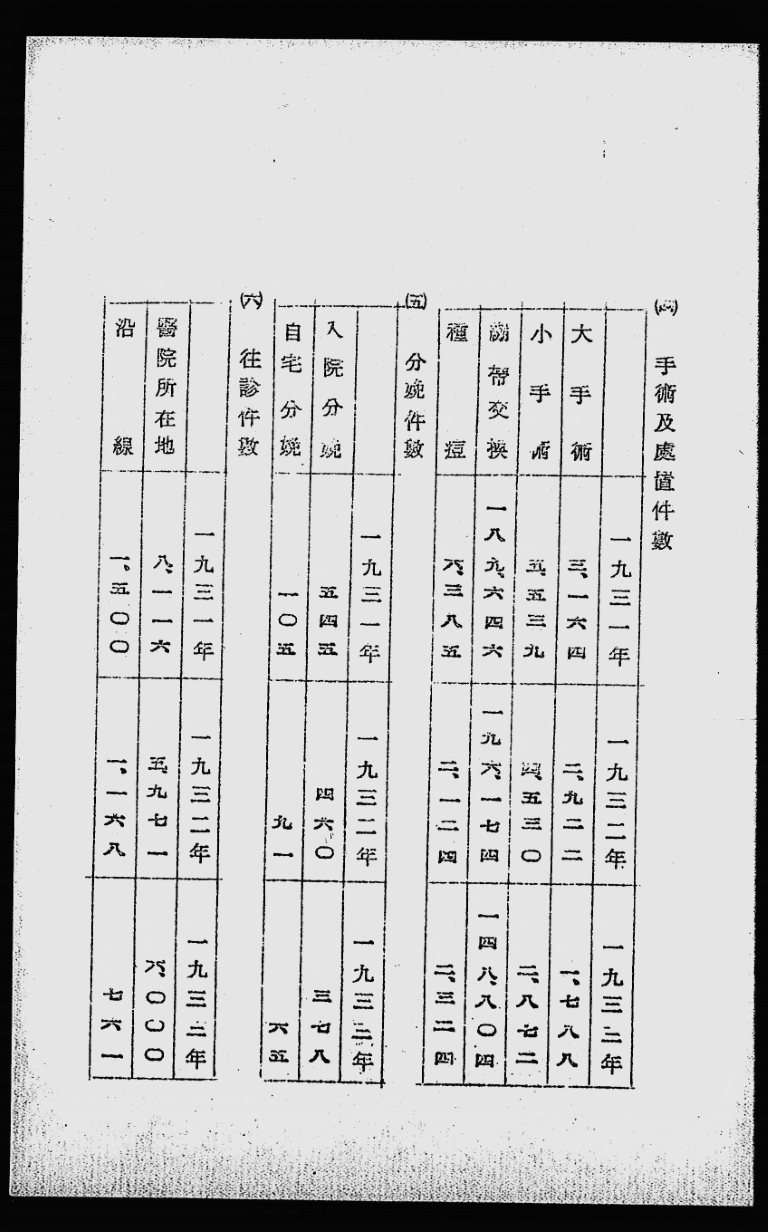 ㈣ 手術及處置件數
一九三一年 一九三二年 一九三三年
大手術 三、一六四 二、九二二 一、七八八
小手術 五、五三九 四、五三〇 二、八七二
繃帶交換 一八九、六四六 一九六、一七四 一四八、八〇四
種痘 六、三八五 二、一二四 二、三二四
㈤ 分娩件數
一九三一年 一九三二年 一九三三年
入院分娩 五四五 四六〇 三七八
自宅分娩 一〇五 九一 六五
㈥ 往診件數
一九三一年 一九三二年 一九三三年
醫院所在地 八、一一六 五、九七一 六、〇〇〇
沿線 一、五〇〇 一、一六八 七六一